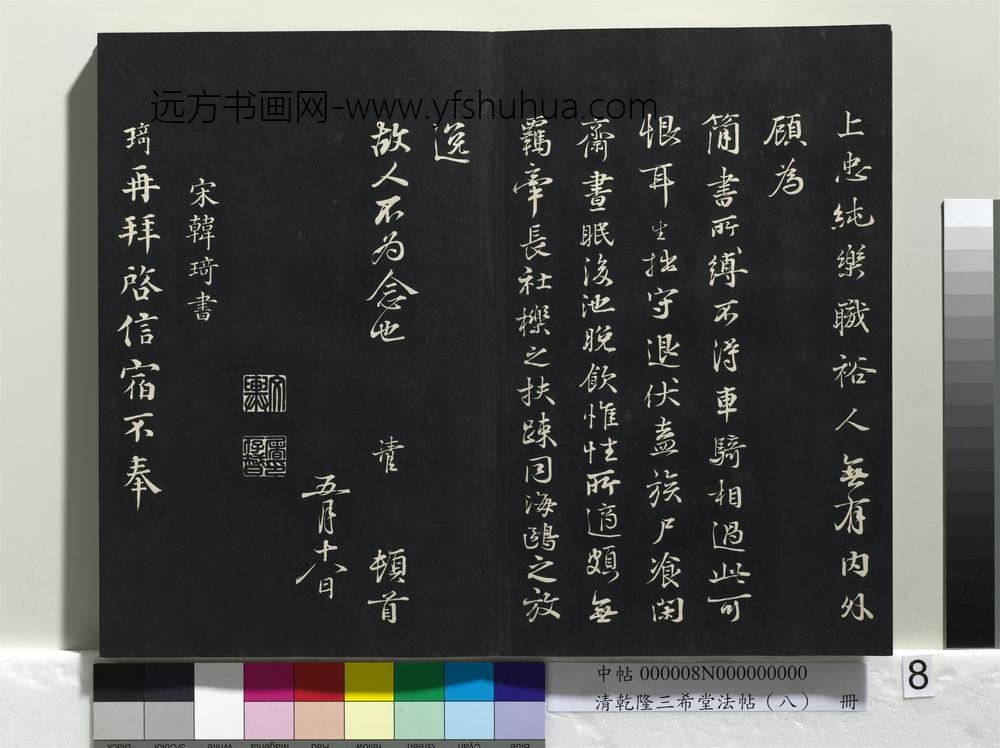 远方书画网-www.yfshuhua.com
上忠純樂職裕人無有内外
顧為
簡書所縛不得車騎相過此可
恨耳生拙守退伏盍族尸飡閑
齋晝眠後池晚飲惟性所適頗無
羈牽長社櫟之扶踈同海鷗之放
逸
故人不為念也 清 頓首
五月十八日
宋韓琦書
琦再拜啓信宿不奉
中帖 000008N000000000
清乾隆三希堂法帖（八） 冊
8
Blue
Cyan
Green
Yellow
Red
Magenta
White
3/Color
Black